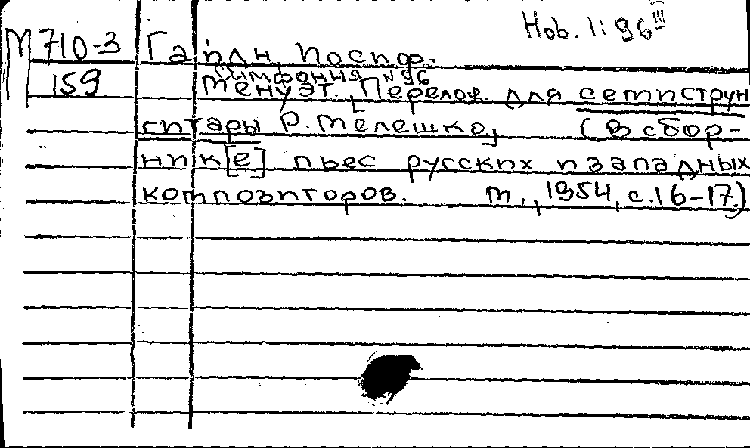 Hob. I: 96 III
М 710-3 Гайдн, Иосиф.
159 Симфония №96
Менуэт. Перелож. для семиструн
гитары Р. Мелешко, (В сбор-
ник[е] пьес русских и западных
композиторов. М., 1954, с. 16-17.)